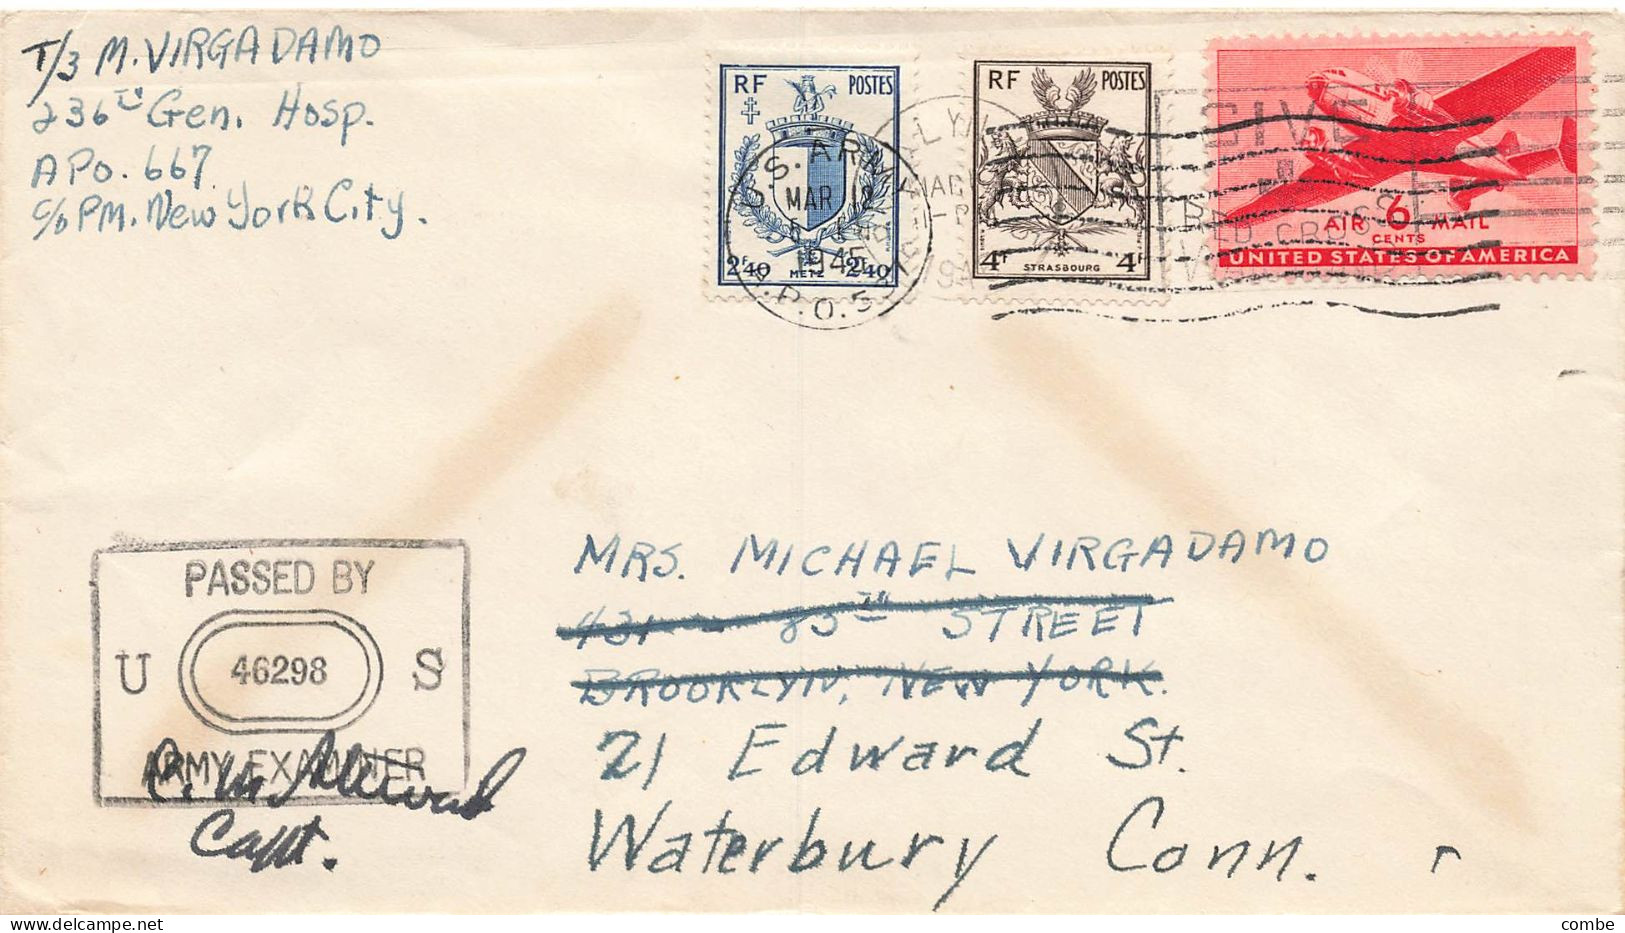 T/3 M. VIRGADAMO
236th Gen. Hosp.
APO. 667
c/o PM. New York City.
RF POSTES
2F40 METZ 2F40
RF POSTES
4F STRASBOURG 4F
AIR 6 MAIL
CENTS
UNITED STATES OF AMERICA
U.S. ARMY
MAR 12
1945
A.P.O.
GIVE
RED CROSS
PASSED BY
U 46298 S
ARMY EXAMINER
Capt.
MRS. MICHAEL VIRGADAMO
431 - 85TH STREET
BROOKLYN, NEW YORK.
21 Edward St.
Waterbury Conn.
combe